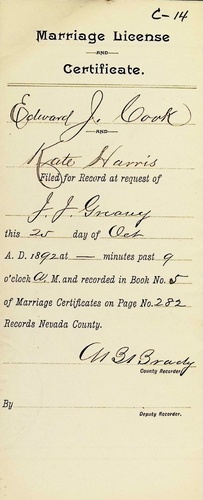 C-14
Marriage License
AND
Certificate.
Edward J. Cook
AND
Kate Harris
Filed for Record at request of
J. J. Greany
this 25 day of Oct
A. D. 1892 at — minutes past 9
o'clock A. M. and recorded in Book No. 5
of Marriage Certificates on Page No. 282
Records Nevada County.
Brady
County Recorder.
By
Deputy Recorder.